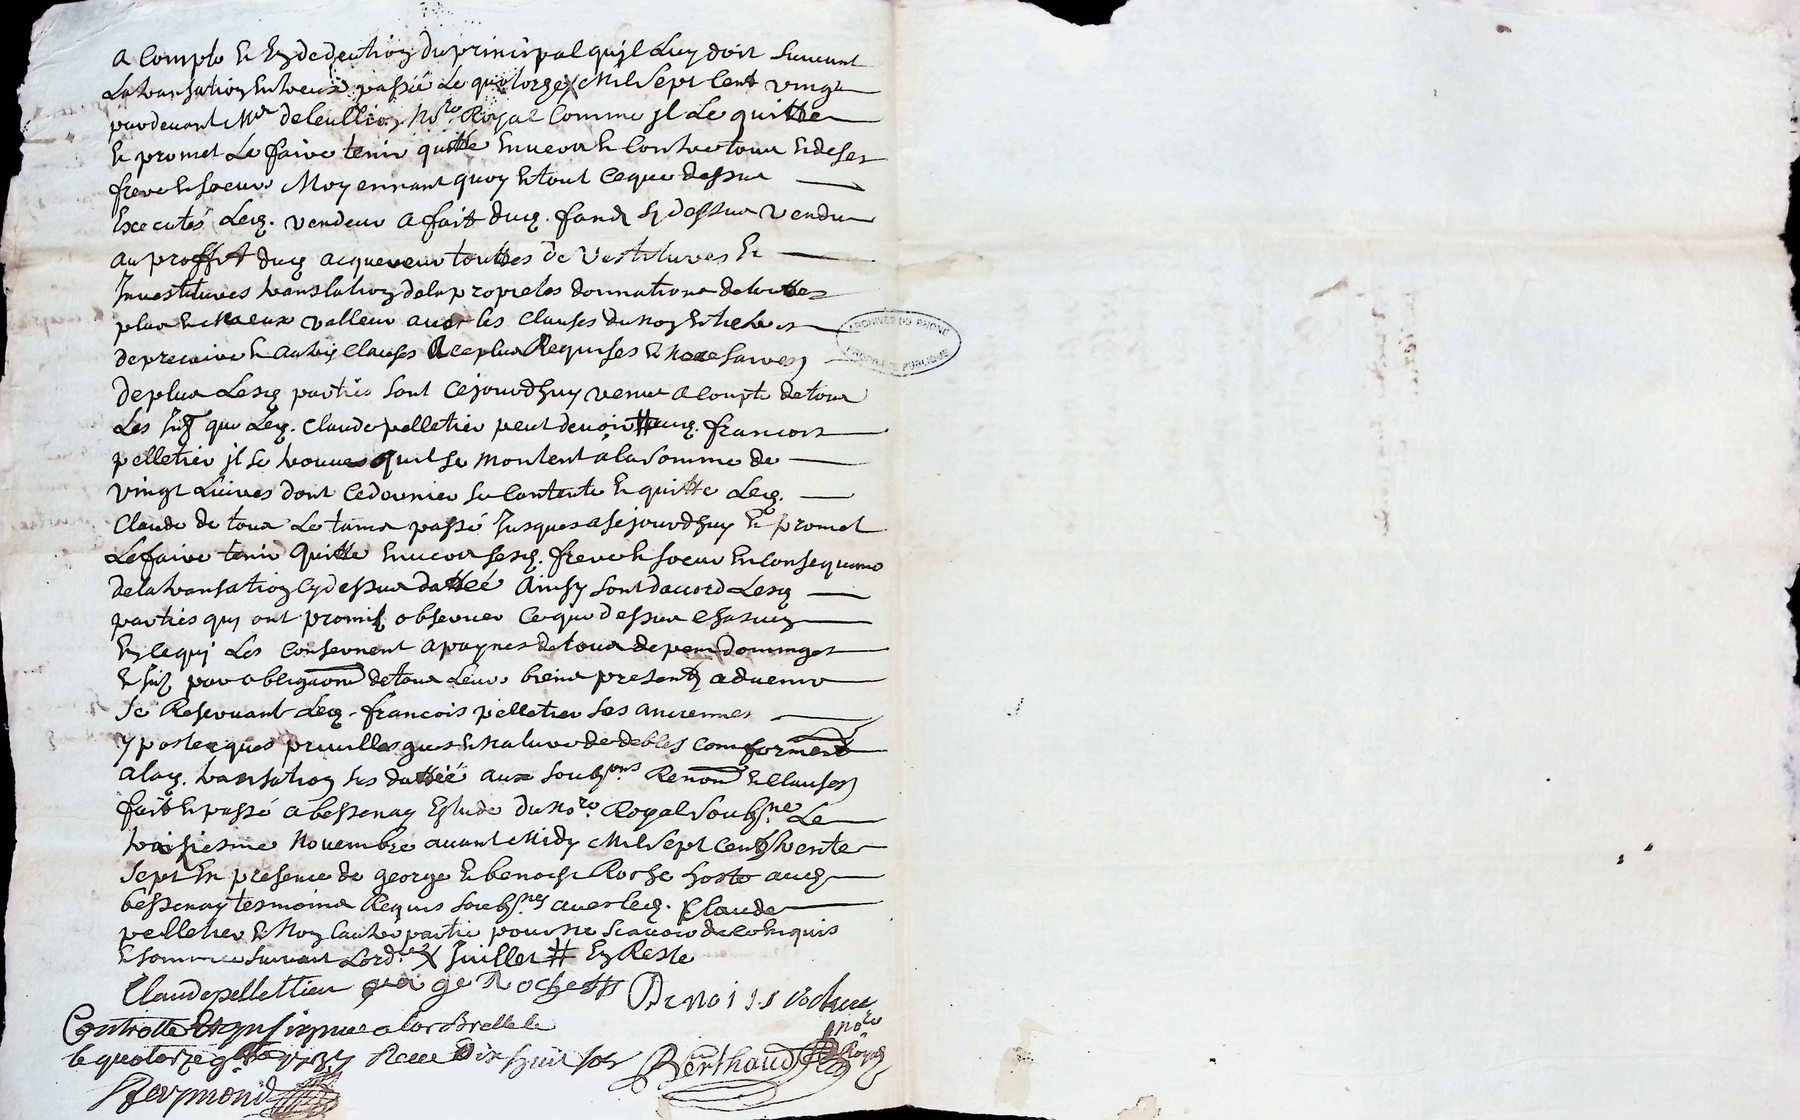 a Compte et En dedection du principal quil Luy doit suivant
La transation Entreux passée Le quatorze X Mil sept Cent vingt
pardevant Mre deleullion No.re Royal Comme jl Le quitte
Et promet Le faire tenir quitte Envers Et Contre tous Et de ses
frere Et soeurs Moyennant quoy Et tout Ceque dessus
Executés Led. vendeur a fait dud. fond Cy dessus vendu
au proffit dud acquereur touttes de Vestitures Et
Investitures translation de la propietes donnations de touttes
plus Et Maeux valleur avec les Clauses de Et
de precaire Et autres Clauses Requises Et Necessaires
De plus Lesd parties sont Cejourdhuy venus a Compte de tous
Les que Led. Claude pelletier peut devoir # aud. francois
pelletier jl se trouve quil se montent a la somme de
vingt Livres dont Cedernier se Contente Et quitte Led.
Claude de tous Le tams passé Jusques a sejourdhuy Et promet
Le faire tenir quitte Envers sesd. frere Et soeur En Consequance
de la transation Cy dessus dattéé Ainsy sont daccord Lesd
parties quj ont promis observer Ceque dessus Chascun
En Cequj Les Consernent a paynes de tous depens dommages
Et par obligaons de tous Leurs biens presents a duenir
Se Reservant Led. francois pelletier ses anciennes
ypostecques privilleges Et Nature de debtes Comforment
a lad. transation sus dattéé aux soubons Renonon Et Clauses
fait Et passé a bessenay Estude du No.re Royal soubs.ne Le
troisiesme Novembre avant Midy Mil sept Cent trente
sept En presence de george Et benoist Roche hoste aud
bessenay tesmoins Requis soubs.nes avec led. Claude
pelletier Et Non Lautre partie pour ne scavoir de Ce Enquis
Et somme suivant Lord.ce X Juillet # En Reste
Claude pelletier george Roche Benoist roche
Controllé Et Insinué a Larbrelle le
le quatorze 9bre 1737 Receu Dix huit sols Berthaud No.re Royal
Reymond
ARCHIVES DU RHONE
PROPRIETE PUBLIQUE